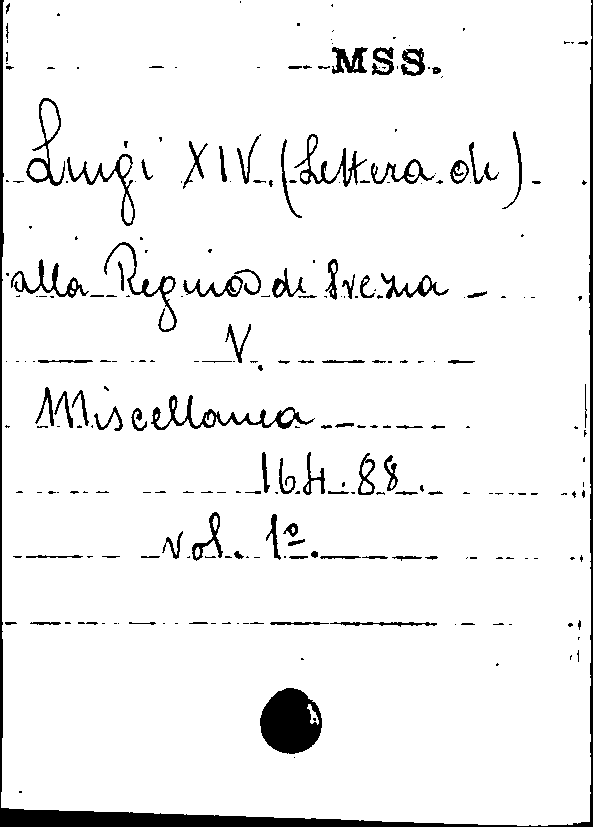 MSS.
Luigi XIV. (Lettera di)
alla Regina di Svezia -
V.
Miscellanea
164.88.
vol. 1º.